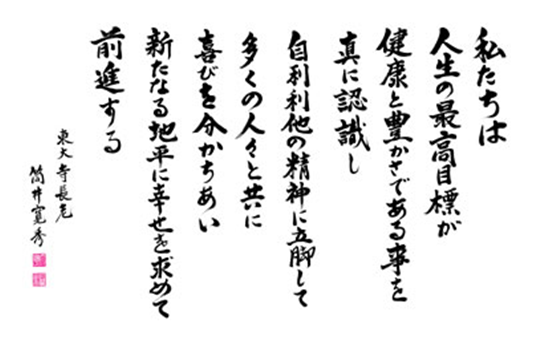 私たちは
人生の最高目標が
健康と豊かさである事を
真に認識し
自利利他の精神に立脚して
多くの人々と共に
喜びを分かちあい
新たなる地平に幸せを求めて
前進する
東大寺長老
筒井寛秀